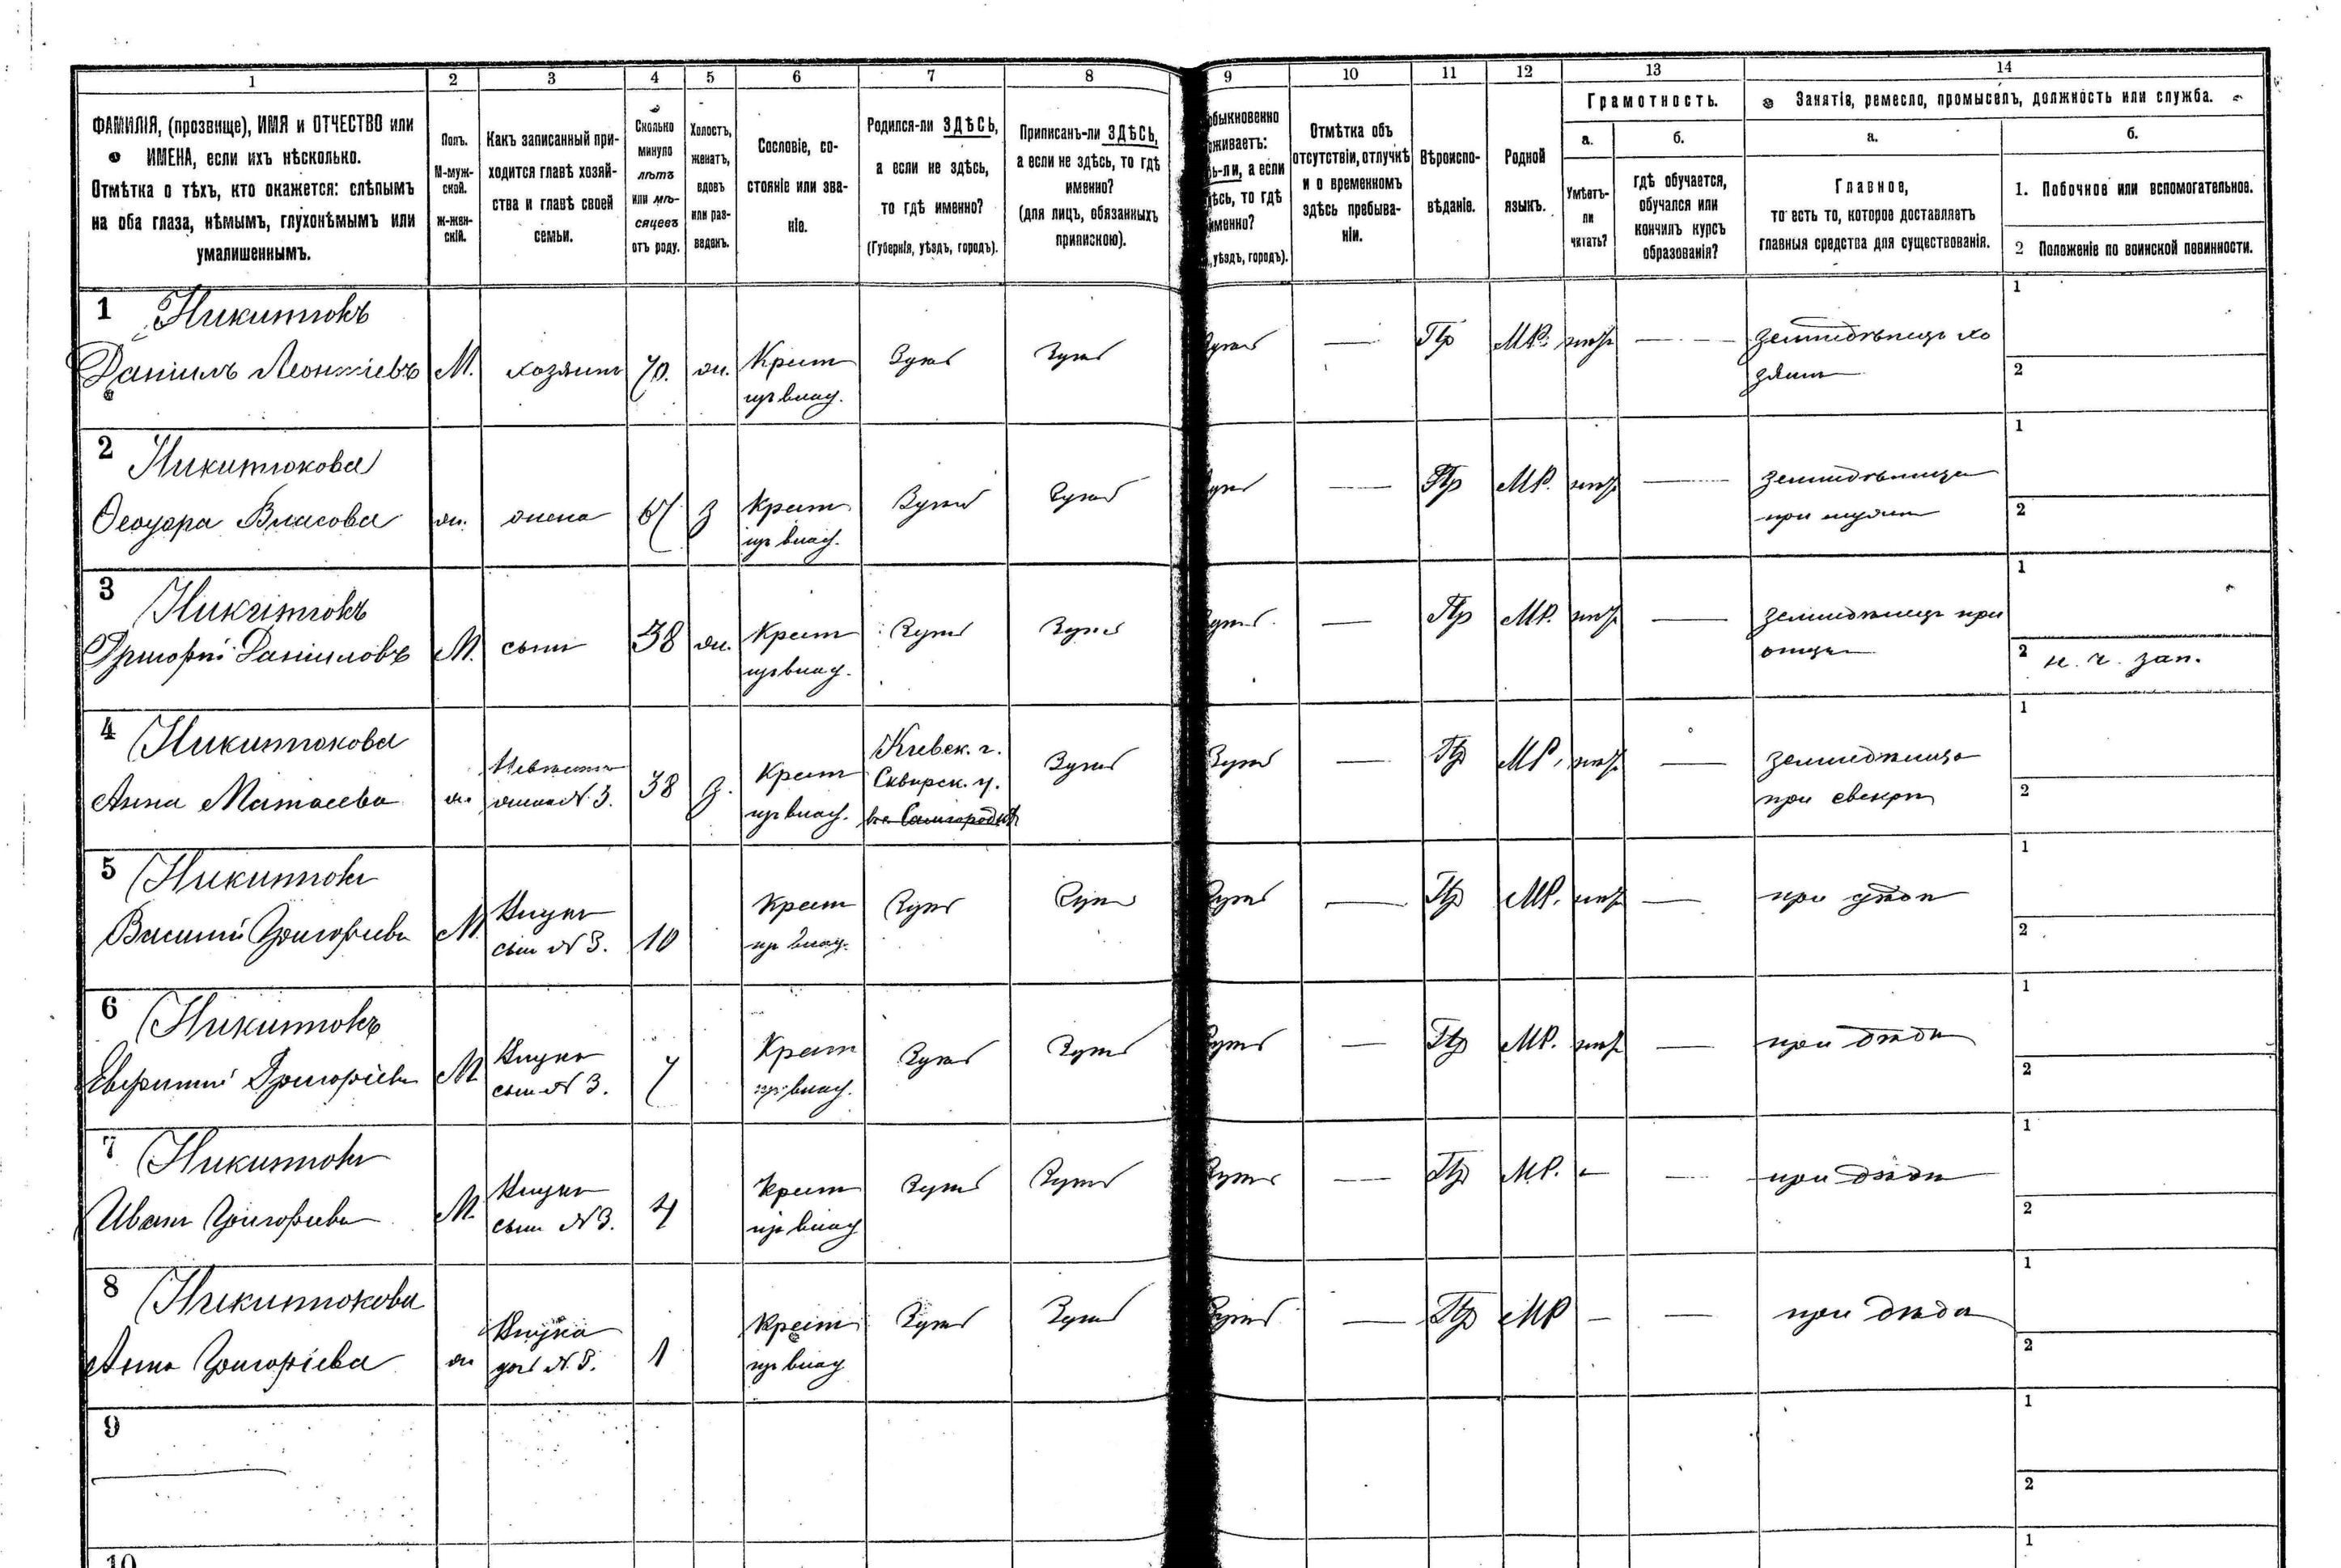 1 2 3 4 5 6 7 8 9 10 11 12 13 14
ФАМИЛІЯ, (прозвище), ИМЯ и ОТЧЕСТВО или
ИМЕНА, если ихъ нѣсколько.
Отмѣтка о тѣхъ, кто окажется: слѣпымъ
на оба глаза, нѣмымъ, глухонѣмымъ или
умалишеннымъ.
Полъ.
М-муж-
ской.
Ж-жен-
скій.
Какъ записанный при-
ходится главѣ хозяй-
ства и главѣ своей
семьи.
Сколько
минуло
лѣтъ
или мѣ-
сяцевъ
отъ роду.
Холостъ,
женатъ,
вдовъ
или раз-
веденъ.
Сословіе, со-
стояніе или зва-
ніе.
Родился-ли ЗДѢСЬ,
а если не здѣсь,
то гдѣ именно?
(Губернія, уѣздъ, городъ).
Приписанъ-ли ЗДѢСЬ,
а если не здѣсь, то гдѣ
именно?
(для лицъ, обязанныхъ
припискою).
быкновенно
живаетъ:
ь-ли, а если
ѣсь, то гдѣ
именно?
, уѣздъ, городъ).
Отмѣтка объ
отсутствіи, отлучкѣ
и о временномъ
здѣсь пребыва-
ніи.
Вѣроиспо-
вѣданіе.
Родной
языкъ.
Грамотность.
а.
Умѣетъ-
ли
читать?
б.
гдѣ обучается,
обучался или
кончилъ курсъ
образованія?
Занятіе, ремесло, промыселъ, должность или служба.
а.
Главное,
то есть то, которое доставляетъ
главныя средства для существованія.
б.
1. Побочное или вспомогательное.
2 Положеніе по воинской повинности.
1 Никитюкъ
Даніилъ Леонтіевъ
М. хозяинъ 70. ж. Крест
изъ влад.
Здѣсь Здѣсь — Пр МР. нѣт —
земледѣлецъ хо
зяинъ
1
2
2 Никитюкова
Феодора Власова
ж. жена 67 з Крест
изъ влад.
Здѣсь Здѣсь — Пр МР. нѣт —
земледѣлица
при мужѣ
1
2
3 Никитюкъ
Григорій Даніиловъ
М. сынъ 38 ж. Крест
изъ влад.
Здѣсь Здѣсь — Пр МР. нѣт —
земледѣлецъ при
отцѣ
1
2 н. ч. зап.
4 Никитюкова
Анна Матѳеева
ж. Невѣстка
жена N 3. 38 з. Крест
изъ влад.
Кіевск. г.
Сквирск. у.
Здѣсь Здѣсь — Пр МР. нѣт —
земледѣлица
при свекрѣ
1
2
5 Никитюкъ
Василій Григорьевъ
М. Внукъ
сынъ N 3. 10 Крест
изъ влад.
Здѣсь Здѣсь Здѣсь — Пр МР. нѣт —
при дѣдѣ
1
2
6 Никитюкъ
Григоріевъ
М Внукъ
сынъ N 3. 7 Крест
изъ влад.
Здѣсь Здѣсь Здѣсь — Пр МР. нѣт —
при дѣдѣ
1
2
7 Никитюкъ
Иванъ Григорьевъ
М. Внукъ
сынъ N 3. 4 Крест
изъ влад
Здѣсь Здѣсь Здѣсь — Пр МР. — —
при дѣдѣ
1
2
8 Никитюкова
Анна Григоріева
ж Внука
дочь N 3. 1 Крест
изъ влад
Здѣсь Здѣсь Здѣсь — Пр МР — —
при дѣдѣ
1
2
9
1
2
10
1